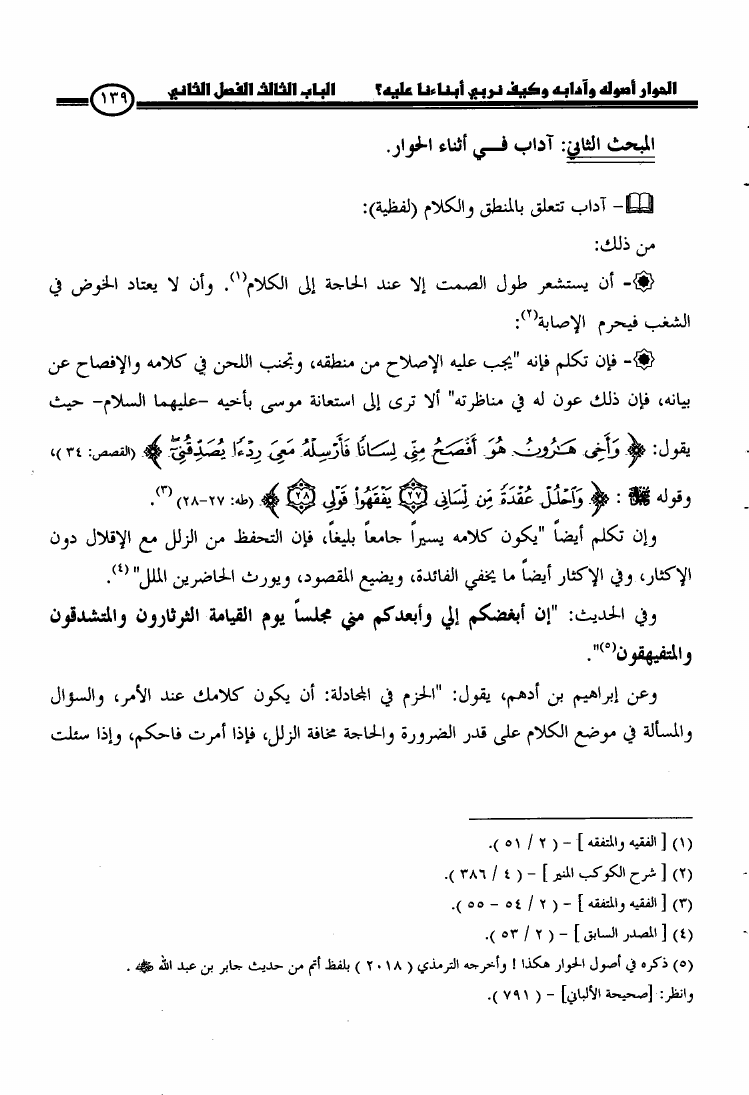 الحوار أصوله وآدابه وكيف نربي أبناءنا عليه؟ الباب الثالث الفصل الثاني ١٣٩
المبحث الثاني: آداب فـــي أثناء الحوار.
- آداب تتعلق بالمنطق والكلام (لفظية):
من ذلك:
- أن يستشعر طول الصمت إلا عند الحاجة إلى الكلام(١). وأن لا يعتاد الخوض في
الشغب فيحرم الإصابة(٢):
- فإن تكلم فإنه "يجب عليه الإصلاح من منطقه، وتجنب اللحن في كلامه والإفصاح عن
بيانه، فإن ذلك عون له في مناظرته" ألا ترى إلى استعانة موسى بأخيه -عليهما السلام- حيث
يقول: ﴿ وَأَخِى هَـٰرُونُ هُوَ أَفْصَحُ مِنِّى لِسَانًا فَأَرْسِلْهُ مَعِىَ رِدْءًا يُصَدِّقُنِىٓ ﴾ (القصص: ٣٤)،
وقوله ﷺ : ﴿ وَٱحْلُلْ عُقْدَةً مِّن لِّسَانِى ٢٧ يَفْقَهُوا۟ قَوْلِى ٢٨ ﴾ (طه: ٢٧-٢٨) (٣).
وإن تكلم أيضاً "يكون كلامه يسيراً جامعاً بليغاً، فإن التحفظ من الزلل مع الإقلال دون
الإكثار، وفي الإكثار أيضاً ما يخفي الفائدة، ويضيع المقصود، ويورث الحاضرين الملل" (٤).
وفي الحديث: "إن أبغضكم إلي وأبعدكم مني مجلساً يوم القيامة الثوثارون والمتشدقون
والمتفيهقون(٥)".
وعن إبراهيم بن أدهم، يقول: "الحزم في المجادلة: أن يكون كلامك عند الأمر، والسؤال
والمسألة في موضع الكلام على قدر الضرورة والحاجة مخافة الزلل، فإذا أمرت فاحكم، وإذا سئلت
(١) [ الفقيه والمتفقه ] - ( ٢ / ٥١ ).
(٢) [ شرح الكوكب المنير ] - ( ٤ / ٣٨٦ ).
(٣) [ الفقيه والمتفقه ] - ( ٢ / ٥٤ - ٥٥ ).
(٤) [ المصدر السابق ] - ( ٢ / ٥٣ ).
(٥) ذكره في أصول الحوار هكذا ! وأخرجه الترمذي ( ٢٠١٨ ) بلفظ أتم من حديث جابر بن عبد الله ﵁ .
وانظر: [صحيحة الألباني] - ( ٧٩١ ).